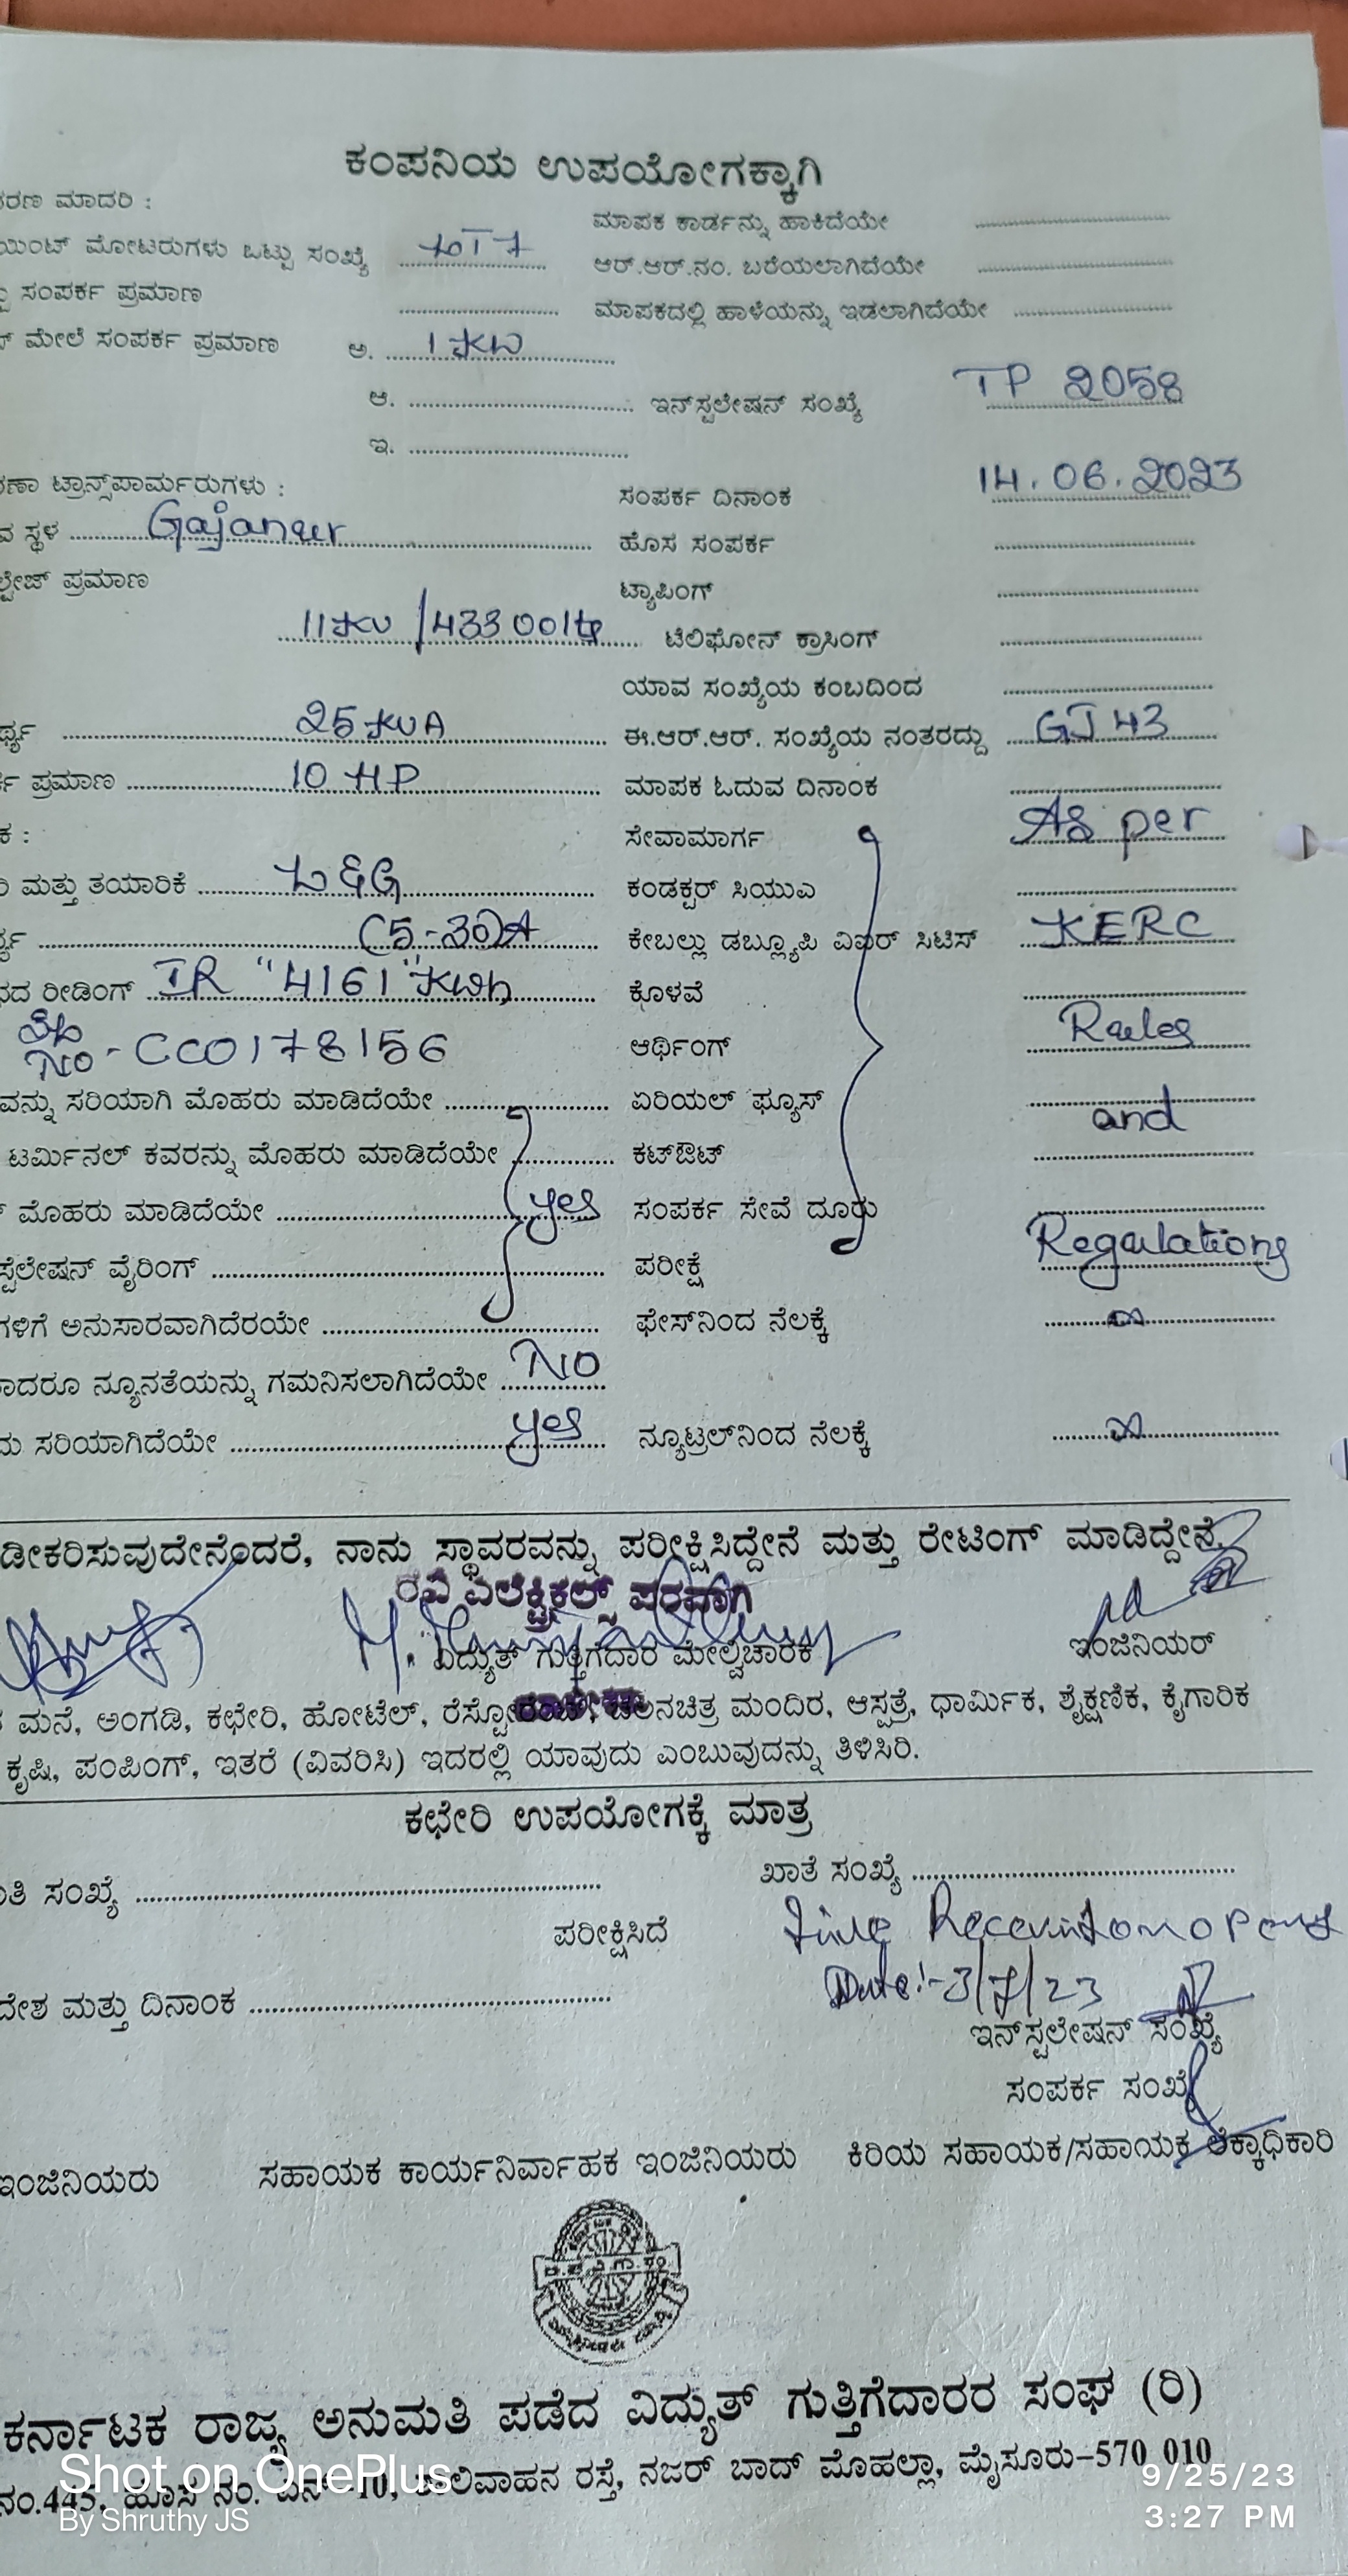 ಕಂಪನಿಯ ಉಪಯೋಗಕ್ಕಾಗಿ
ರಣ ಮಾದರಿ :
ಮಾಪಕ ಕಾರ್ಡನ್ನು ಹಾಕಿದೆಯೇ
ಯಿಂಟ್ ಮೋಟರುಗಳು ಒಟ್ಟು ಸಂಖ್ಯೆ
ಆರ್.ಆರ್.ನಂ. ಬರೆಯಲಾಗಿದೆಯೇ
ಸಂಪರ್ಕ ಪ್ರಮಾಣ
ಮಾಪಕದಲ್ಲಿ ಹಾಳೆಯನ್ನು ಇಡಲಾಗಿದೆಯೇ
ಮೇಲೆ ಸಂಪರ್ಕ ಪ್ರಮಾಣ ಅ. 1 KW
ಆ. ಇನ್‌ಸ್ಟಲೇಷನ್ ಸಂಖ್ಯೆ TP 2058
ಇ.
ಣಾ ಟ್ರಾನ್ಸ್‌ಪಾರ್ಮರುಗಳು : ಸಂಪರ್ಕ ದಿನಾಂಕ 14.06.2023
ವ ಸ್ಥಳ Gajanur ಹೊಸ ಸಂಪರ್ಕ
ಲ್ಟೇಜ್ ಪ್ರಮಾಣ ಟ್ಯಾಪಿಂಗ್
11KV/433 Volts ಟೆಲಿಫೋನ್ ಕ್ರಾಸಿಂಗ್
ಯಾವ ಸಂಖ್ಯೆಯ ಕಂಬದಿಂದ
ರ್ಥ್ಯ 25 KVA ಈ.ಆರ್.ಆರ್. ಸಂಖ್ಯೆಯ ನಂತರದ್ದು GJ 43
ಕ ಪ್ರಮಾಣ 10 HP ಮಾಪಕ ಓದುವ ದಿನಾಂಕ
ಕ : ಸೇವಾಮಾರ್ಗ As per
ರಿ ಮತ್ತು ತಯಾರಿಕೆ L&G ಕಂಡಕ್ಟರ್ ಸಿಯುಎ
(5-30)A ಕೇಬಲ್ಲು ಡಬ್ಲ್ಯೂಪಿ ವಿಐರ್ ಸಿಟಿಸ್ KERC
ದ ರೀಡಿಂಗ್ IR "4161" Kwh ಕೊಳವೆ
Sl No - CC0178156 ಆರ್ಥಿಂಗ್ Rules
ವನ್ನು ಸರಿಯಾಗಿ ಮೊಹರು ಮಾಡಿದೆಯೇ ಏರಿಯಲ್ ಫ್ಯೂಸ್ and
ಟರ್ಮಿನಲ್ ಕವರನ್ನು ಮೊಹರು ಮಾಡಿದೆಯೇ ಕಟ್‌ಔಟ್
ಮೊಹರು ಮಾಡಿದೆಯೇ yes ಸಂಪರ್ಕ ಸೇವೆ ದೂರು
ಸ್ಟೆಲೇಷನ್ ವೈರಿಂಗ್ ಪರೀಕ್ಷೆ Regulations
ಗಳಿಗೆ ಅನುಸಾರವಾಗಿದೆರಯೇ ಫೇಸ್‌ನಿಂದ ನೆಲಕ್ಕೆ ∞
ಾದರೂ ನ್ಯೂನತೆಯನ್ನು ಗಮನಿಸಲಾಗಿದೆಯೇ NO
ಸರಿಯಾಗಿದೆಯೇ yes ನ್ಯೂಟ್ರಲ್‌ನಿಂದ ನೆಲಕ್ಕೆ ∞
ಡೀಕರಿಸುವುದೇನೆಂದರೆ, ನಾನು ಸ್ಥಾವರವನ್ನು ಪರೀಕ್ಷಿಸಿದ್ದೇನೆ ಮತ್ತು ರೇಟಿಂಗ್ ಮಾಡಿದ್ದೇನೆ.
ರವಿ ಎಲೆಕ್ಟ್ರಿಕಲ್ಸ್ ಪರವಾಗಿ
ವಿದ್ಯುತ್ ಗುತ್ತಿಗೆದಾರ ಮೇಲ್ವಿಚಾರಕ ಇಂಜಿನಿಯರ್
ಮನೆ, ಅಂಗಡಿ, ಕಛೇರಿ, ಹೋಟೆಲ್, ರೆಸ್ಟೋರೆಂಟ್, ಚಲನಚಿತ್ರ ಮಂದಿರ, ಆಸ್ಪತ್ರೆ, ಧಾರ್ಮಿಕ, ಶೈಕ್ಷಣಿಕ, ಕೈಗಾರಿಕ
ಕೃಷಿ, ಪಂಪಿಂಗ್, ಇತರೆ (ವಿವರಿಸಿ) ಇದರಲ್ಲಿ ಯಾವುದು ಎಂಬುವುದನ್ನು ತಿಳಿಸಿರಿ.
ಕಛೇರಿ ಉಪಯೋಗಕ್ಕೆ ಮಾತ್ರ
ತಿ ಸಂಖ್ಯೆ ಖಾತೆ ಸಂಖ್ಯೆ
ಪರೀಕ್ಷಿಸಿದೆ
ದೇಶ ಮತ್ತು ದಿನಾಂಕ Date:-3/7/23
ಇನ್‌ಸ್ಟಲೇಷನ್ ಸಂಖ್ಯೆ
ಸಂಪರ್ಕ ಸಂಖ್ಯೆ
ಇಂಜಿನಿಯರು ಸಹಾಯಕ ಕಾರ್ಯನಿರ್ವಾಹಕ ಇಂಜಿನಿಯರು ಕಿರಿಯ ಸಹಾಯಕ/ಸಹಾಯಕ ಲೆಕ್ಕಾಧಿಕಾರಿ
ಕರ್ನಾಟಕ ರಾಜ್ಯ ಅನುಮತಿ ಪಡೆದ ವಿದ್ಯುತ್ ಗುತ್ತಿಗೆದಾರರ ಸಂಘ (ರಿ)
ನಂ.445, ಹೊಸ ನಂ. ಎನ್-10, ರಸ್ತೆ, ನಜರ್ ಬಾದ್ ಮೊಹಲ್ಲಾ, ಮೈಸೂರು-570 010
Shot on OnePlus
By Shruthy JS
9/25/23
3:27 PM